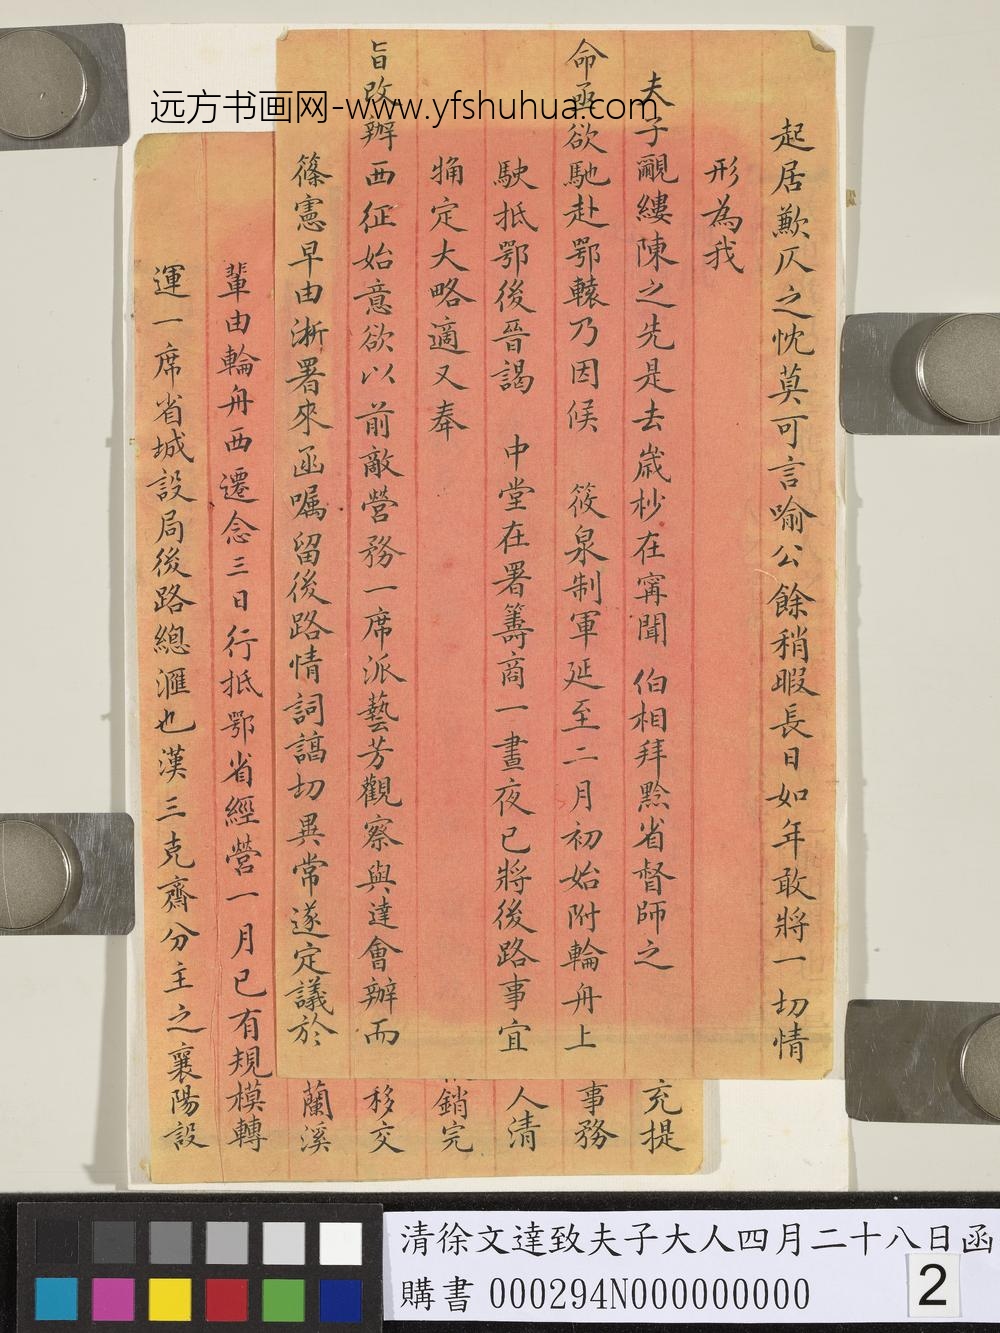 远方书画网-www.yfshuhua.com
起居歉仄之忱莫可言喻公餘稍暇長日如年敢將一切情
形為我
夫子覼縷陳之先是去歲杪在甯聞 伯相拜黔省督師之
命函欲馳赴鄂轅乃因候 筱泉制軍延至二月初始附輪舟上
駛抵鄂後晉謁 中堂在署籌商一晝夜已將後路事宜
定大略適又奉
旨改辦西征始意欲以前敵營務一席派藝芳觀察與達會辦而
篠憲早由浙署來函囑留後路情詞謟切異常遂定議於
充提
事務
人清
銷完
移交
蘭溪
輩由輪舟西遷念三日行抵鄂省經營一月已有規模轉
運一席省城設局後路總滙也漢三克齋分主之襄陽設
清徐文達致夫子大人四月二十八日函
購書 000294N000000000
2